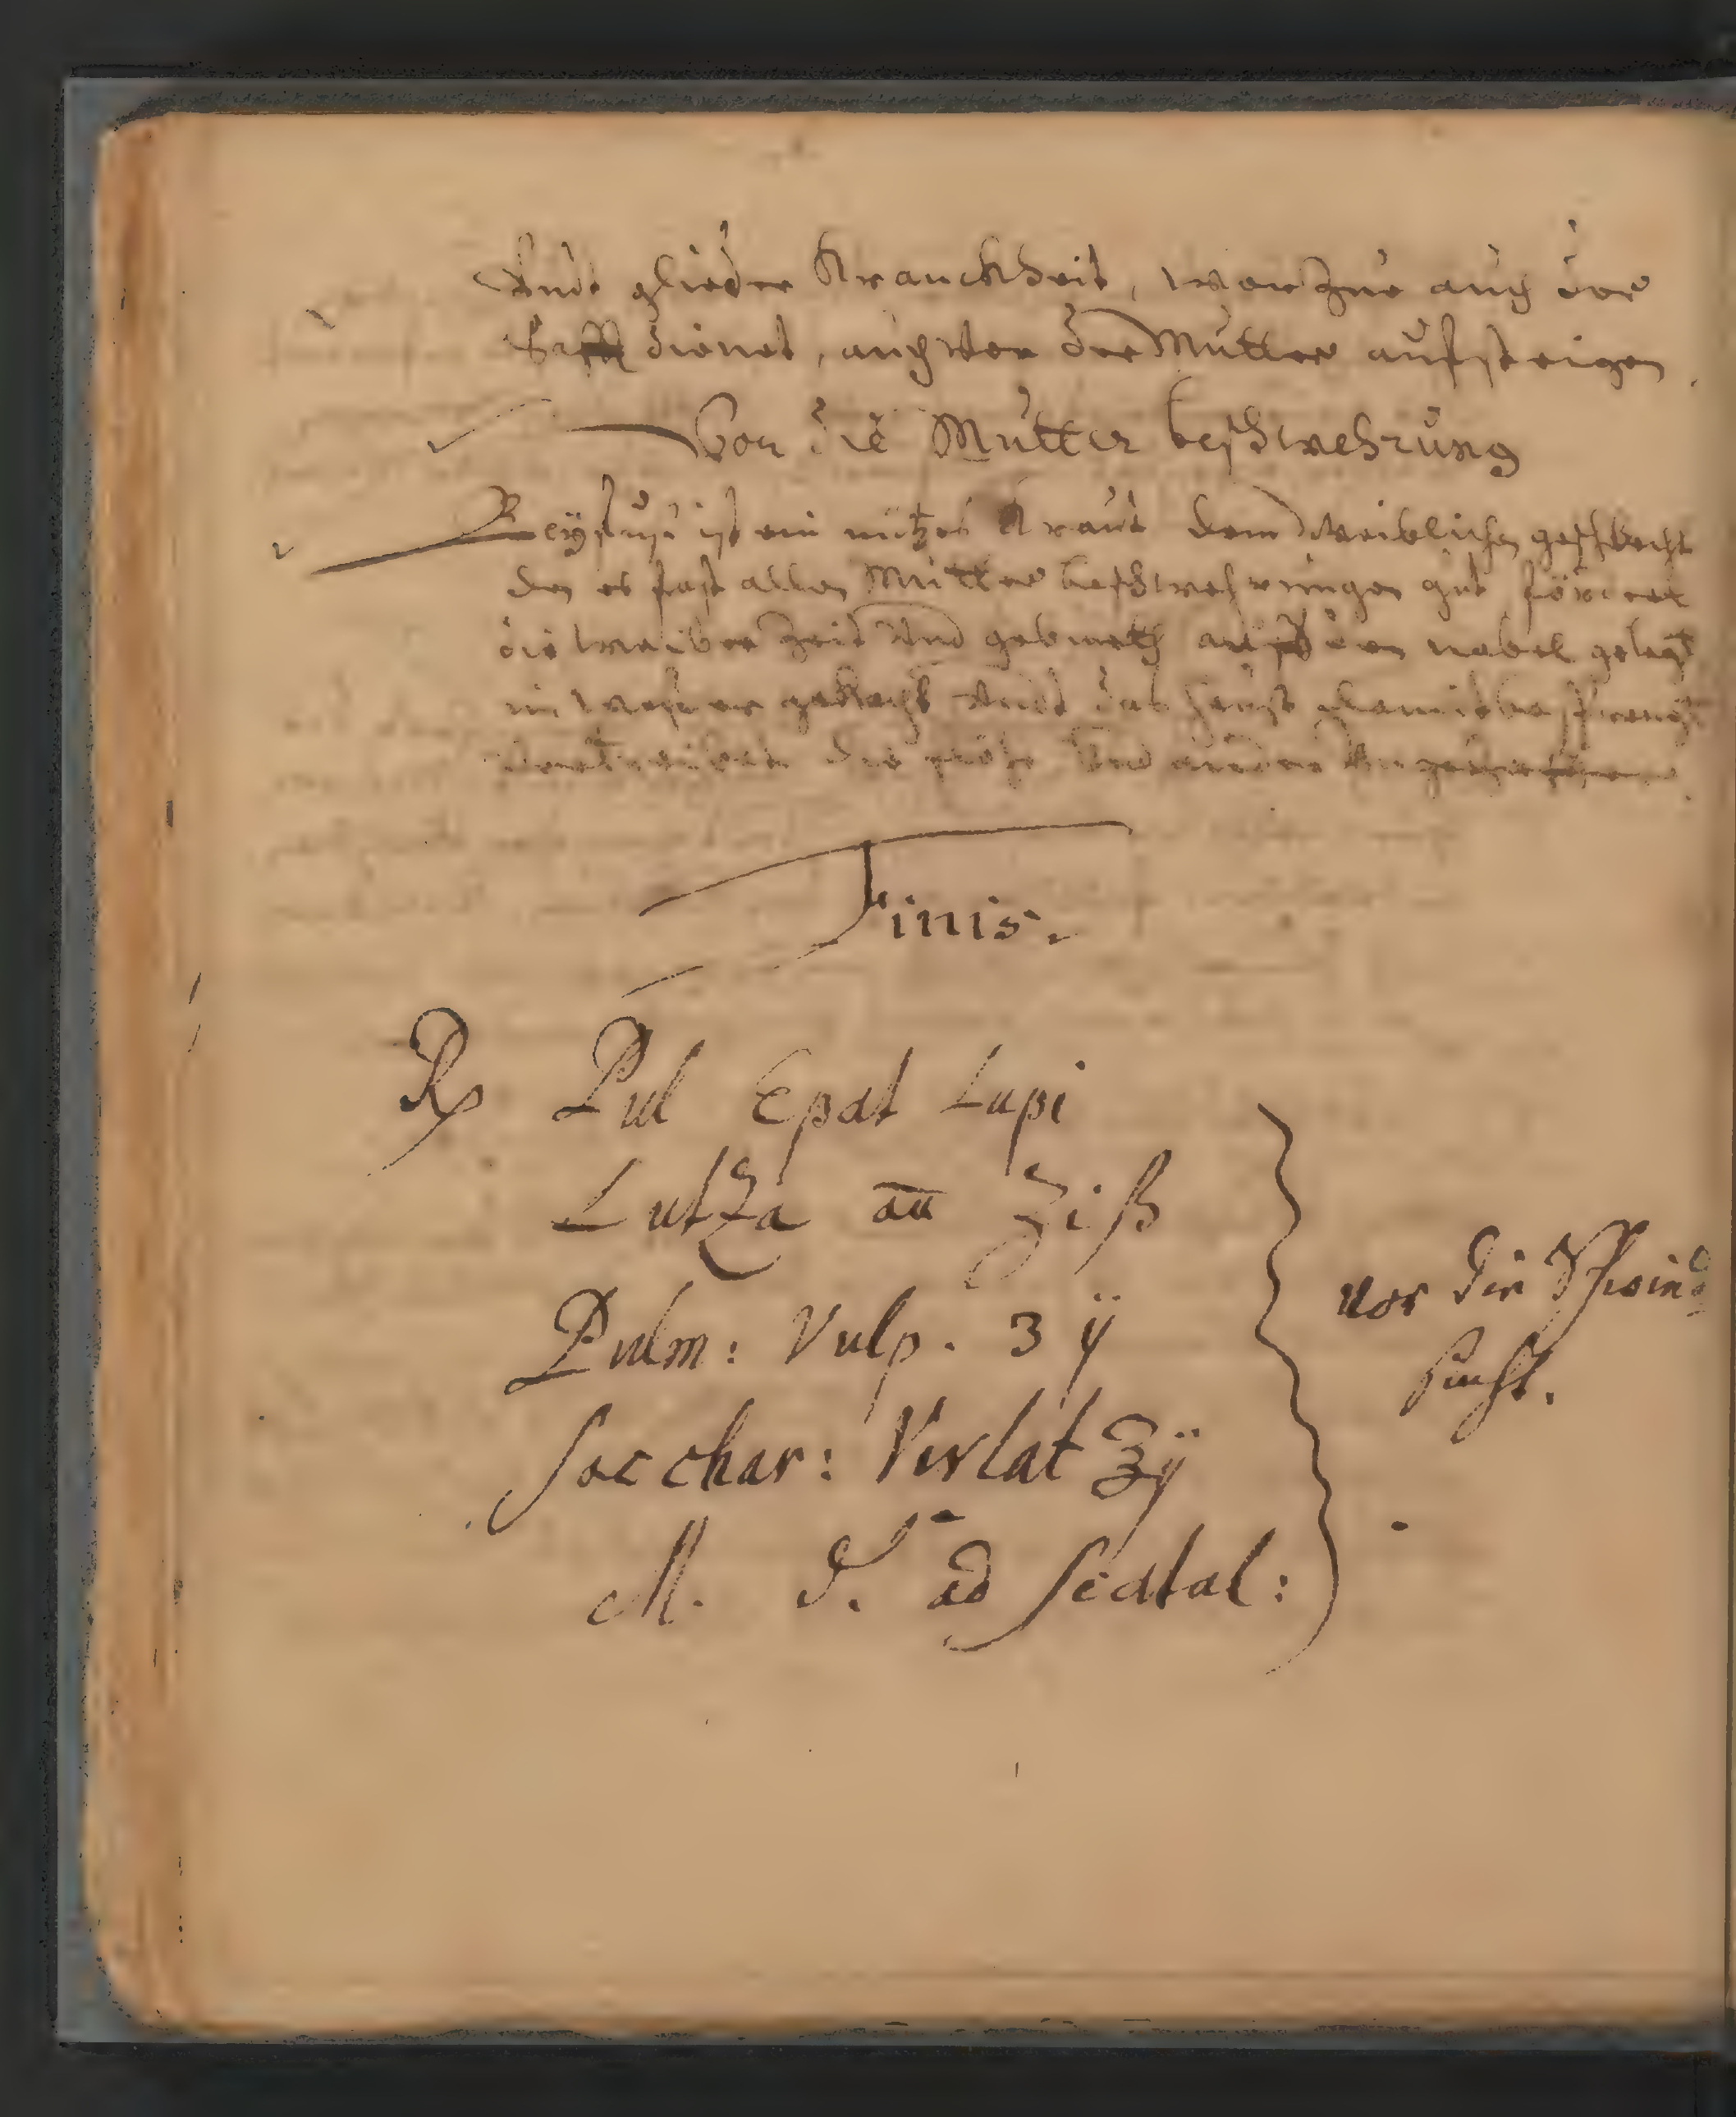 Undt glieder Kranckheit, warzue auch der
Safft dienet, auch vor der Mutter aufsteigen.
Vor die Mutter beschwehrung
Beyfus ist ein nutzes Kraut dem weiblichen geschlecht
den es fast allen Mutter beschwehrungen gut, fördert
die weiber Zeit und geburth auf den nabel gelegt
in waßer gekocht undt das hauß damit besprengt
vertreibet die flöhe und ander
Finis.
Rp Pul Epat Lupi
Lutza aa ʒiß
Pulm: Vulp. ʒ ij
Sacchar: Verlat ʒij
M. S. ad Scatal:
vor die Schwind
sucht.